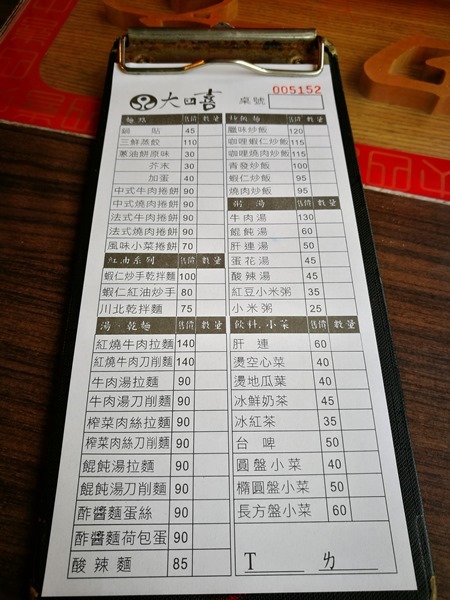 大四喜 桌號 005152
麵點 售價 數量
鍋貼 45
三鮮蒸餃 110
蔥油餅原味 30
芥末 30
加蛋 40
中式牛肉捲餅 90
中式燒肉捲餅 90
法式牛肉捲餅 90
法式燒肉捲餅 90
風味小菜捲餅 70
紅油系列 售價 數量
蝦仁炒手乾拌麵 100
蝦仁紅油炒手 80
川北乾拌麵 75
湯、乾麵 售價 數量
紅燒牛肉拉麵 140
紅燒牛肉刀削麵 140
牛肉湯拉麵 90
牛肉湯刀削麵 90
榨菜肉絲拉麵 90
榨菜肉絲刀削麵 90
餛飩湯拉麵 90
餛飩湯刀削麵 90
酢醬麵蛋絲 90
酢醬麵荷包蛋 90
酸辣麵 85
售價 數量
臘味炒飯 120
咖哩蝦仁炒飯 115
咖哩燒肉炒飯 115
青發炒飯 100
蝦仁炒飯 95
燒肉炒飯 95
粥湯 售價 數量
牛肉湯 130
餛飩湯 60
肝連湯 50
蛋花湯 45
酸辣湯 45
紅豆小米粥 35
小米粥 25
飲料.小菜 售價 數量
肝連 60
燙空心菜 40
燙地瓜葉 40
冰鮮奶茶 45
冰紅茶 35
台啤 50
圓盤小菜 40
橢圓盤小菜 50
長方盤小菜 60
T ㄌ